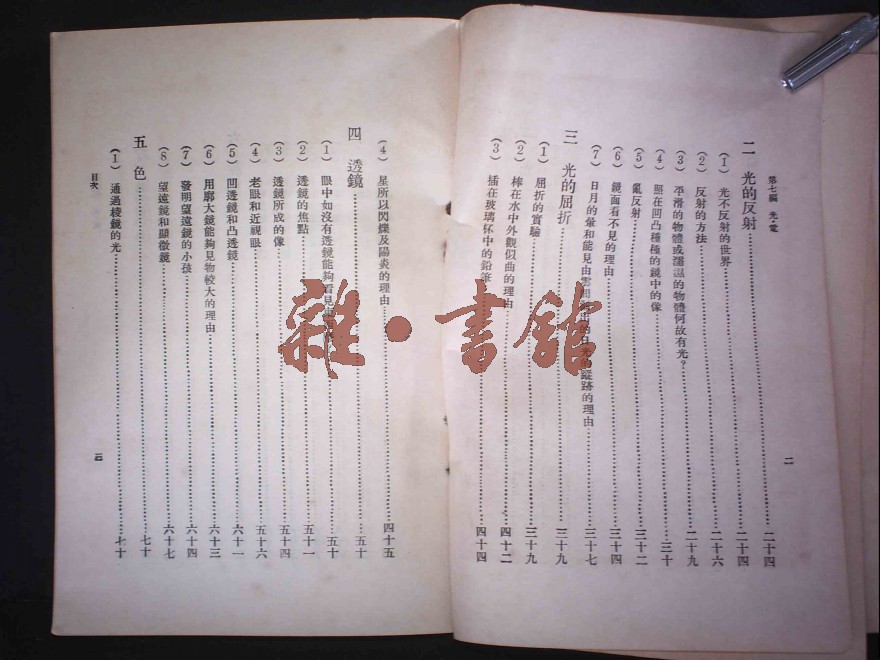 第七編 光電
二 光的反射……二十四
(1) 光不反射的世界……二十四
(2) 反射的方法……二十六
(3) 平滑的物體或濡溼的物體何故有光?……二十九
(4) 照在凹凸種種的鏡中的像……三十
(5) 亂反射……三十二
(6) 鏡面看不見的理由……三十四
(7) 日月的暈和能見由雲間 的日光的蹤跡的理由……三十七
三 光的屈折……三十九
(1) 屈折的實驗……三十九
(2) 棒在水中外觀似曲的理由……四十二
(3) 插在玻璃杯中的鉛筆……四十四
二
(4) 星所以閃爍及陽炎的理由……四十五
四 透鏡……五十
(1) 眼中如沒有透鏡能夠看見……五十
(2) 透鏡的焦點……五十一
(3) 透鏡所成的像……五十四
(4) 老眼和近視眼……五十六
(5) 凹透鏡和凸透鏡……六十一
(6) 用廓大鏡能夠見物較大的理由……六十三
(7) 發明望遠鏡的小孩……六十四
(8) 望遠鏡和顯微鏡……六十七
五 色……七十
(1) 通過棱鏡的光……七十
目次
三
雜·書館